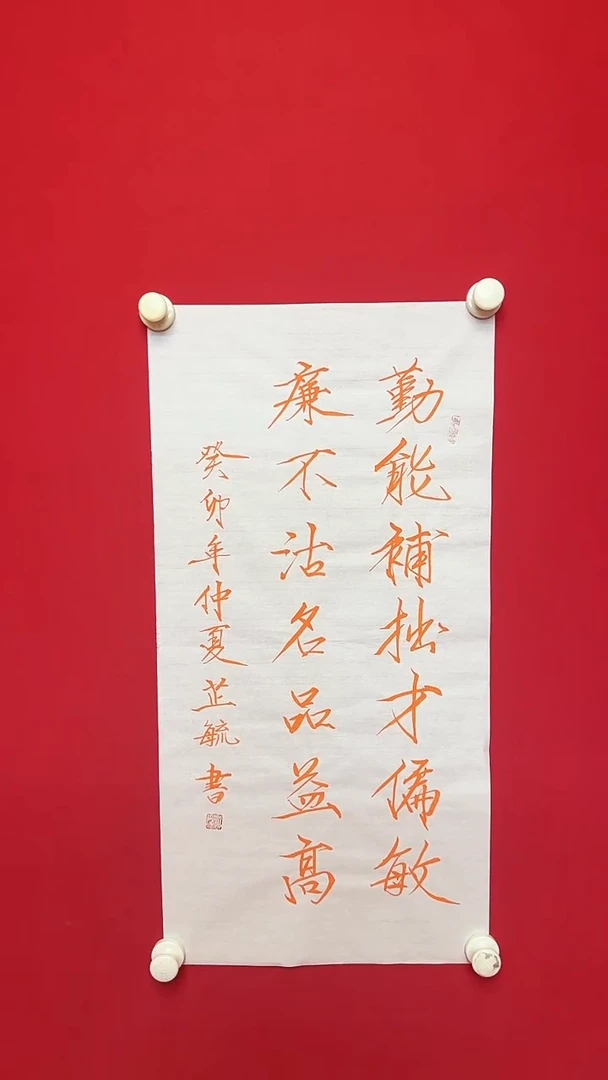 勤能補拙才儒敏
廉不沽名品益高
癸卯年仲夏芷毓書